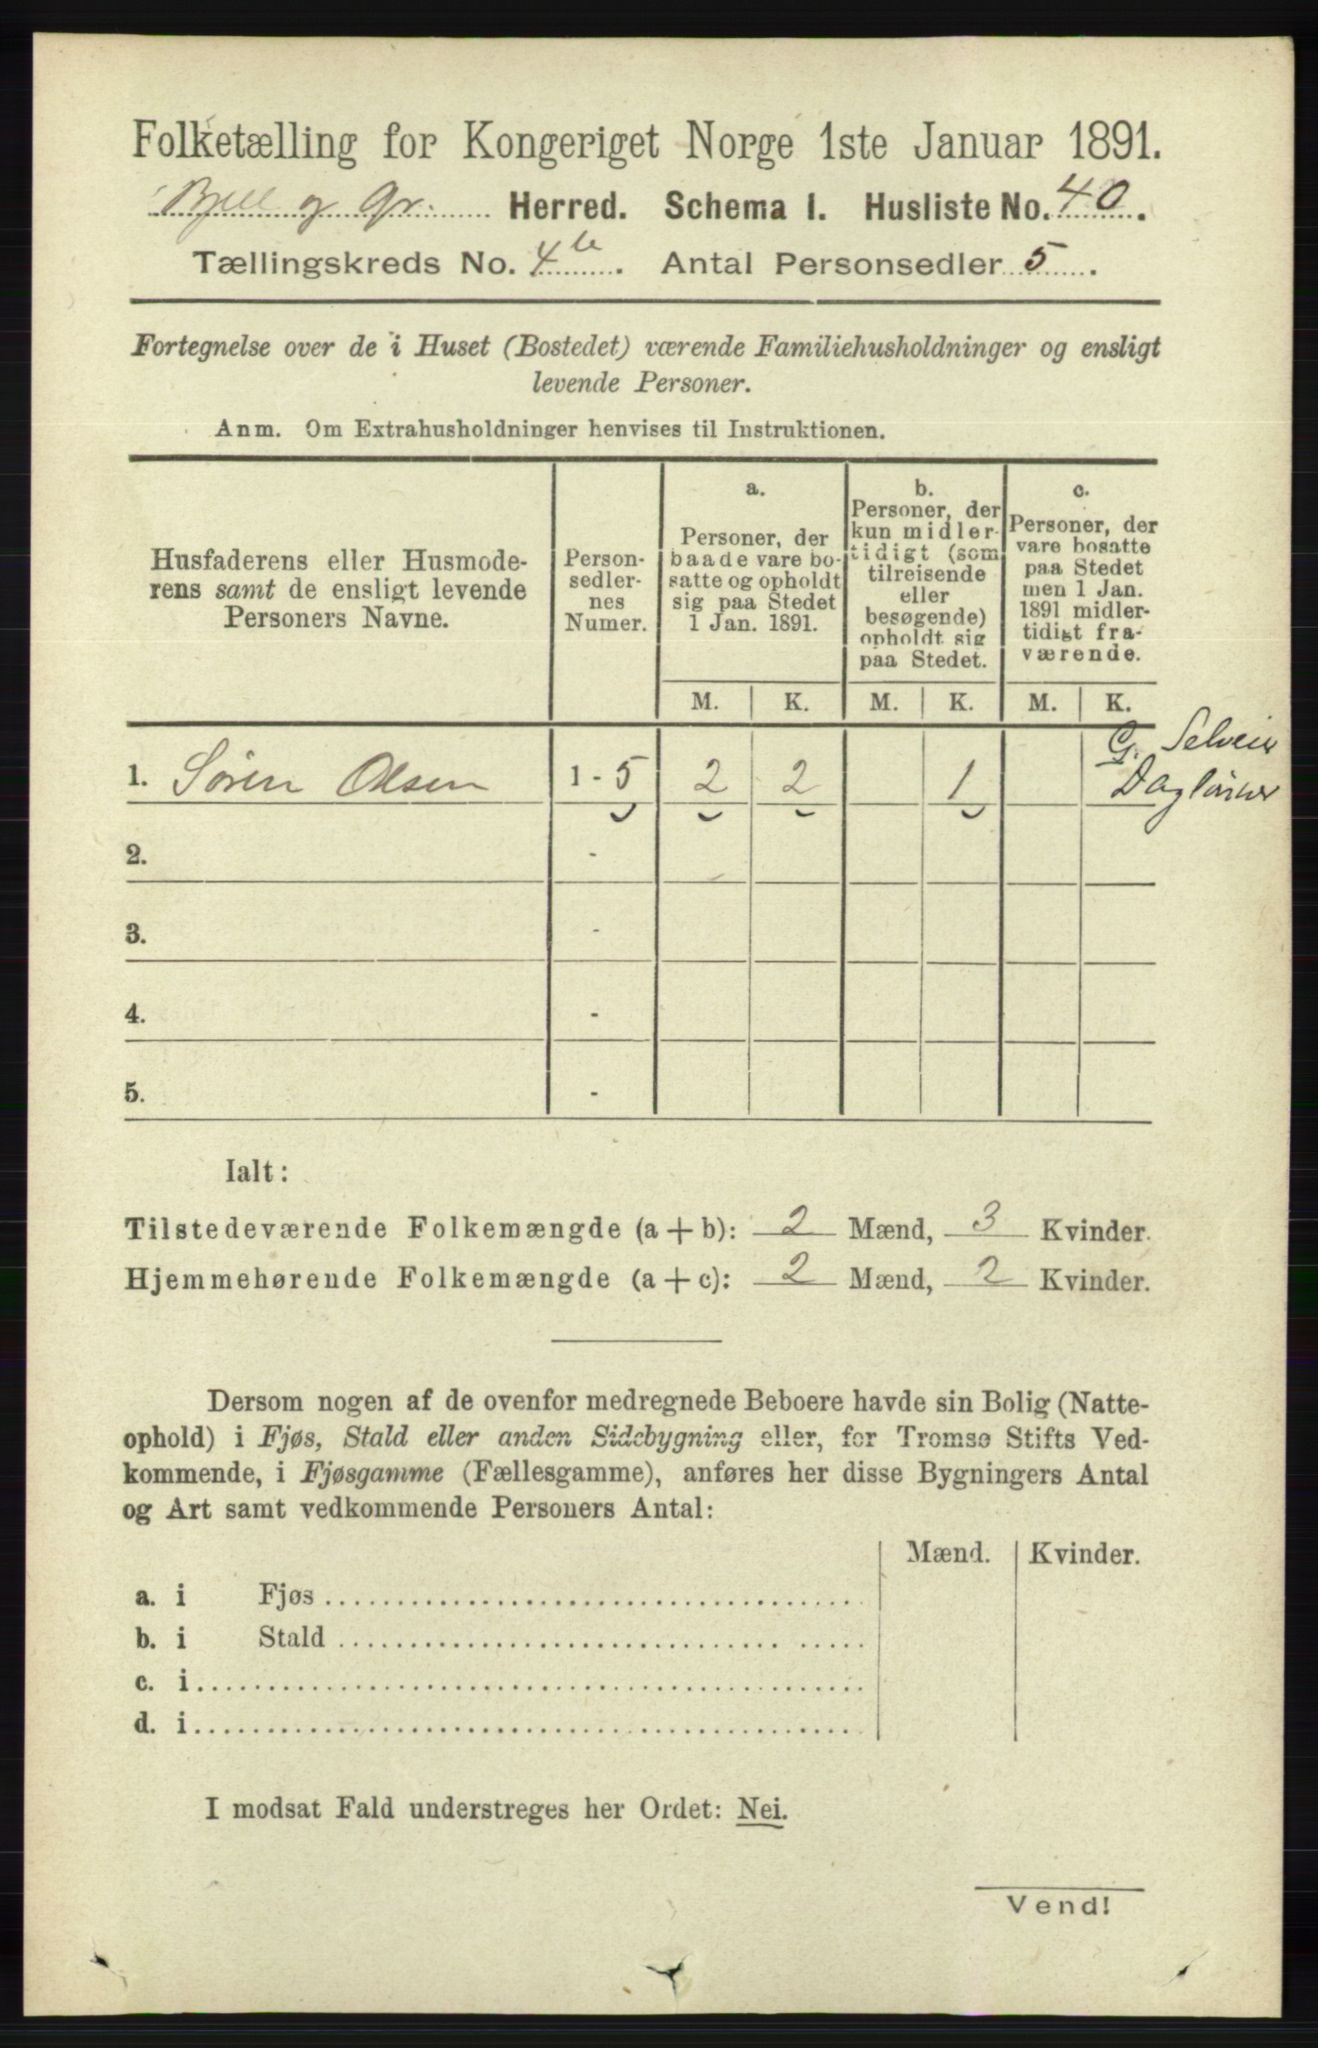 Folketælling for Kongeriget Norge 1ste Januar 1891.
og Gr. Herred. Schema I. Husliste No. 40.
Tællingskreds No. 4b. Antal Personsedler 5.
Fortegnelse over de i Huset (Bostedet) værende Familiehusholdninger og ensligt
levende Personer.
Anm. Om Extrahusholdninger henvises til Instruktionen.
Husfaderens eller Husmode-
rens samt de ensligt levende
Personers Navne.
Person-
sedler-
nes
Numer.
a.
Personer, der
baade vare bo-
satte og opholdt
sig paa Stedet
1 Jan. 1891.
b.
Personer, der
kun midler-
tidigt (som
tilreisende
eller
besøgende)
opholdt sig
paa Stedet.
c.
Personer, der
vare bosatte
paa Stedet
men 1 Jan.
1891 midler-
tidigt fra-
værende.
M. K. M. K. M. K.
G. Selveier
1. Søren Olsen 1 - 5 2 2 1 Daglönner
2. -
3. -
4. -
5. -
Ialt:
Tilstedeværende Folkemængde (a + b): 2 Mænd, 3 Kvinder.
Hjemmehørende Folkemængde (a + c): 2 Mænd, 2 Kvinder.
Dersom nogen af de ovenfor medregnede Beboere havde sin Bolig (Natte-
ophold) i Fjøs, Stald eller anden Sidebygning eller, for Tromsø Stifts Ved-
kommende, i Fjøsgamme (Fællesgamme), anføres her disse Bygningers Antal
og Art samt vedkommende Personers Antal:
Mænd. Kvinder.
a. i Fjøs
b. i Stald
c. i
d. i
I modsat Fald understreges her Ordet: Nei.
Vend!